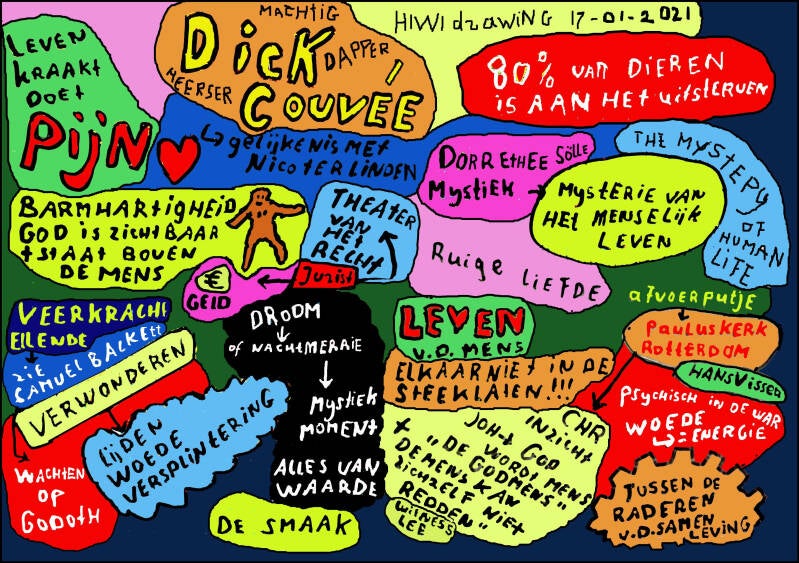 HIWI drawing 17-01-2021
MACHTIG
DICK
DAPPER
HEERSER
COUVÉE
LEVEN
KRAAKT
DOET
PIJN
80% van DIEREN
IS AAN HET uitsterven
gelijkenis met
Nico ter Linden
DORRETHEE Sölle
Mystiek
MYSTERIE VAN
HET MENSELIJK
LEVEN
THE MYSTERY
OF
HUMAN
LIFE
BARMHARTIGHEID
GOD is zichtBAAR
tstaat BOVEN
DE MENS
THEATER
VAN
HET
RECHT
Jurist
€
GELD
Ruige LIEFDE
afvoerputje
PAULUSKERK
ROTTERDAM
HANS Visser
VEERKRACHT
ELLENDE
ZIE
SAMUEL BALKETT
VERWONDEREN
DROOM
of NACHTMERRIE
Mystiek
MOMENT
ALLES VAN
WAARDE
LEVEN
v.D. MENS
ELKAAR NIET IN DE
STEEKLATEN!!!
Psychisch in de war
WOEDE
= ENERGIE
LIJDEN
WOEDE
VERSPLINTERING
WACHTEN
OP
GODOTH
CHR
INZICHT
JOH+ GOD
WORDT MENS
+ "DE GODMENS"
DE MENS KAN
zichzelf NIET
REDDEN"
WITNESS
LEE
TUSSEN DE
RADEREN
v.D. SAMEN
LEVING
DE SMAAK